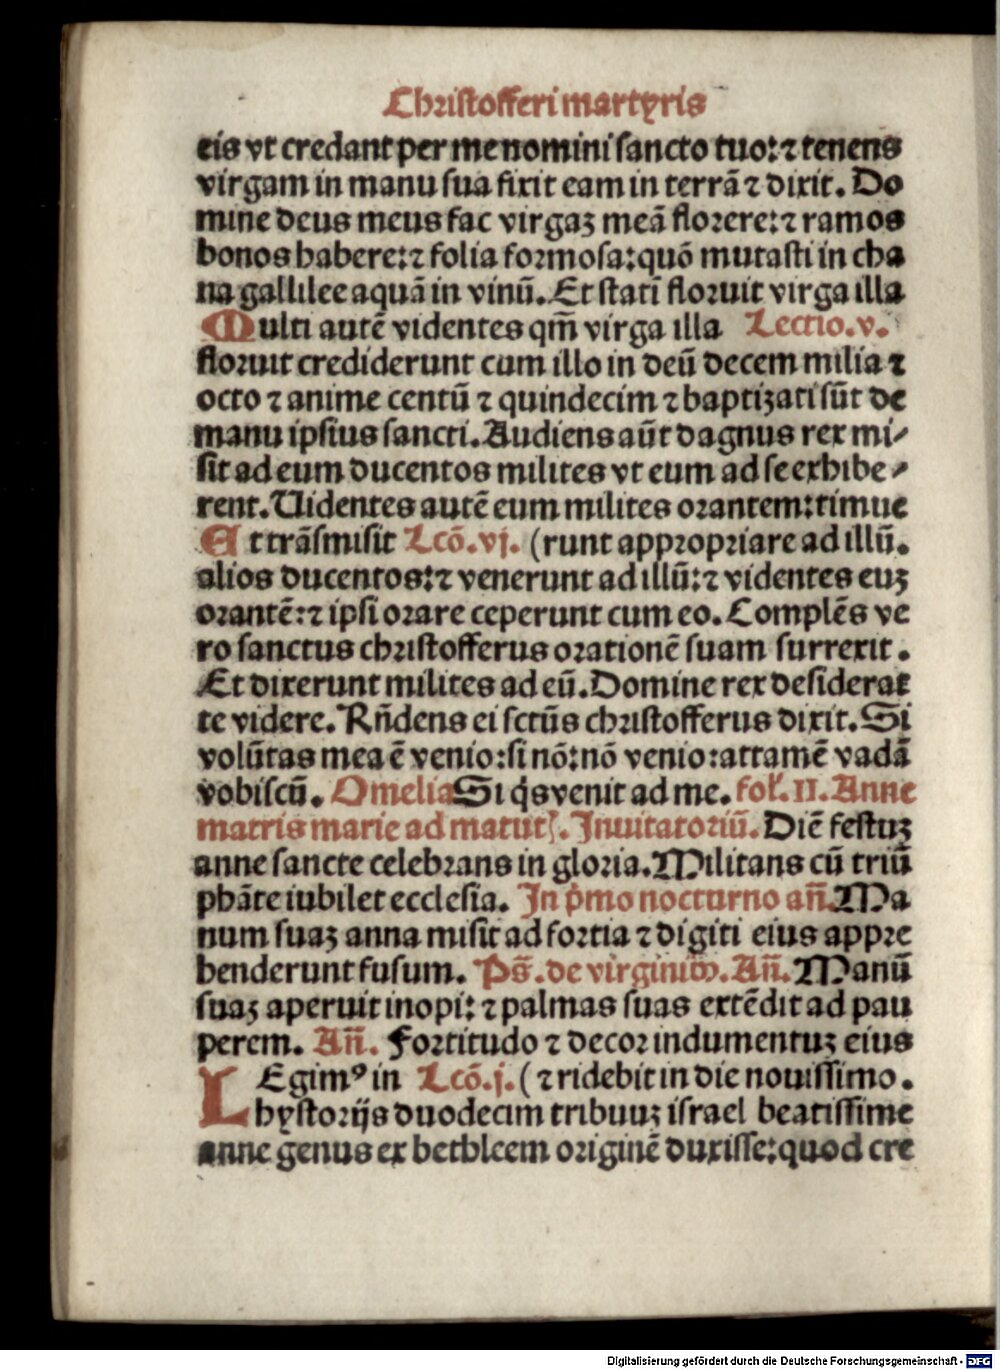 Christofferi martyris
eis vt credant per me nomini sancto tuo: ⁊ tenens
virgam in manu sua fixit eam in terrā ⁊ dixit. Do
mine deus meus fac virgaȝ meā florere: ⁊ ramos
bonos habere: ⁊ folia formosa: quō mutasti in cha
na gallilee aquā in vinū. Et statī floruit virga illa
Multi autē videntes qm̄ virga illa Lectio.v.
floruit crediderunt cum illo in deū decem milia ⁊
octo ⁊ anime centū ⁊ quindecim ⁊ baptizati sūt de
manu ipsius sancti. Audiens aūt dagnus rex mi⸗
sit ad eum ducentos milites vt eum ad se exhibe⸗
rent. Uidentes autē eum milites orantem: timue
Et trāsmisit Lcō.vj. (runt appropriare ad illū.
alios ducentos: ⁊ venerunt ad illū: ⁊ videntes euȝ
orantē: ⁊ ipsi orare ceperunt cum eo. Complēs ve
ro sanctus christofferus orationē suam surrexit.
Et dixerunt milites ad eū. Domine rex desiderat
te videre. Rn̄dens ei sctūs christofferus dixit. Si
volūtas mea ē venio: si nō: nō venio: attamē vadā
vobiscū. Omelia Si q̇s venit ad me. fol. II. Anne
matris marie ad matut. Inuitatoriū. Diē festuȝ
anne sancte celebrans in gloria. Militans cū triū
phāte iubilet ecclesia. In p̍mo nocturno an̄. Ma
num suaȝ anna misit ad fortia ⁊ digiti eius appre
henderunt fusum. Ps̄. de virginibꝰ. An̄. Manū
suaȝ aperuit inopi: ⁊ palmas suas extēdit ad pau
perem. An̄. Fortitudo ⁊ decor indumentuȝ eius
LEgimꝰ in Lcō.j. (⁊ ridebit in die nouissimo.
hystorijs duodecim tribuuȝ israel beatissime
anne genus ex bethleem originē duxisse: quod cre
Digitalisierung gefördert durch die Deutsche Forschungsgemeinschaft - DFG